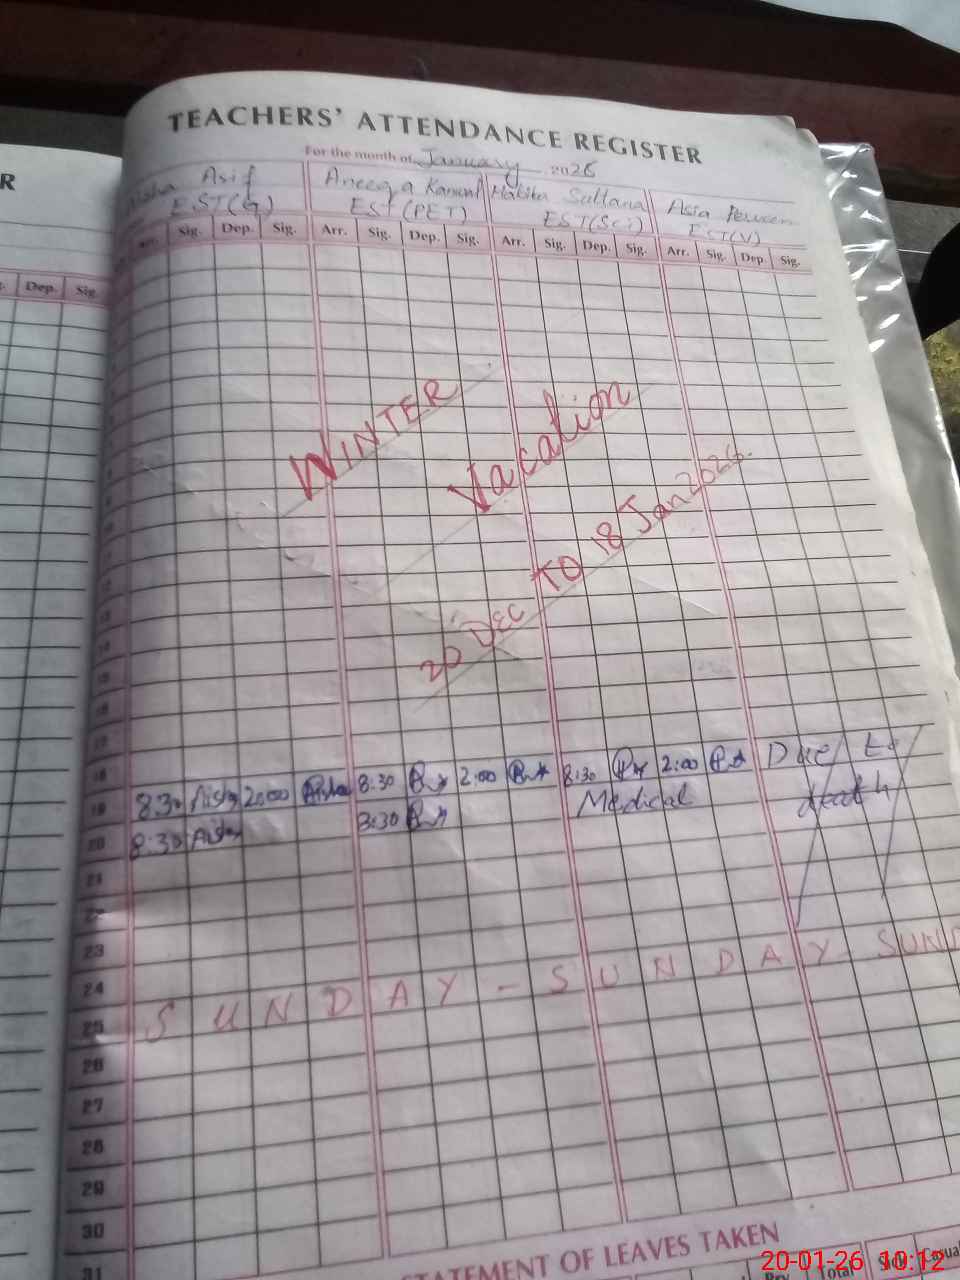 R
TEACHERS' ATTENDANCE REGISTER
For the month of January 2026
Aisha Asif Aneeqa Kanwal Habiba Sultana Asia Perveen
EST(G) EST(PET) EST(Sci) EST(V)
Dep. Sig. Arr. Sig. Dep. Sig. Arr. Sig. Dep. Sig. Arr. Sig. Dep. Sig. Arr. Sig. Dep. Sig.
WINTER
Vacation
20 DEC TO 18 Jan 2026.
14
15
16
17
18
19 8:30 Aisha 2:00 Aisha 8:30 2:00 8:30 2:00 Due to
20 8:30 Aisha 8:30 Medical death
21
22
23
24
25 SUNDAY - SUNDAY - SUND
26
27
28
29
30
31
STATEMENT OF LEAVES TAKEN
Total Sick Casual
20-01-26 10:12